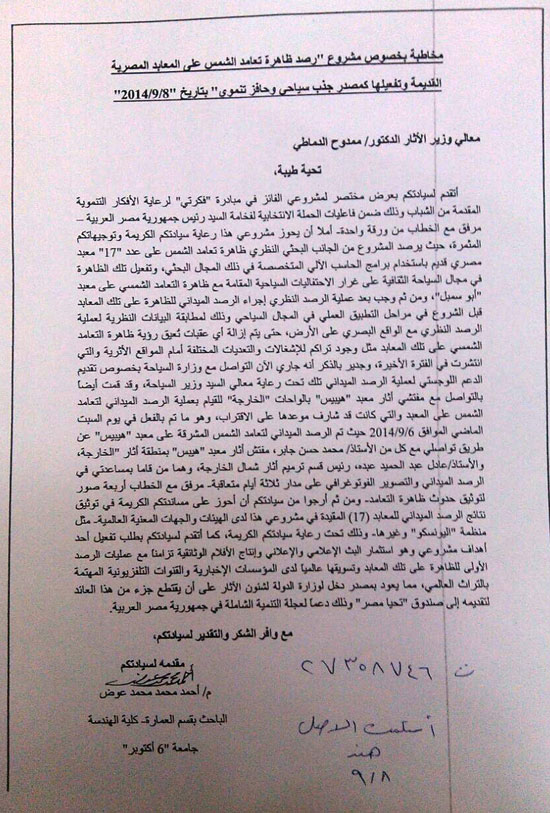 مخاطبة بخصوص مشروع "رصد ظاهرة تعامد الشمس على المعابد المصرية
القديمة وتفعيلها كمصدر جذب سياحي وحافز تنموي" بتاريخ "2014/9/8"
معالي وزير الآثار الدكتور/ ممدوح الدماطي
تحية طيبة،
أتقدم لسيادتكم بعرض مختصر لمشروعي الفائز في مبادرة "فكرتي" لرعاية الأفكار التنموية
المقدمة من الشباب وذلك ضمن فاعليات الحملة الانتخابية لفخامة السيد رئيس جمهورية مصر العربية –
مرفق مع الخطاب من ورقة واحدة- أملاً أن يحوز مشروعي هذا رعاية سيادتكم الكريمة وتوجيهاتكم
المثمرة، حيث يرصد المشروع من الجانب البحثي النظري ظاهرة تعامد الشمس على عدد "17" معبد
مصري قديم باستخدام برامج الحاسب الآلي المتخصصة في ذلك المجال البحثي، وتفعيل تلك الظاهرة
في مجال السياحة الثقافية على غرار الاحتفاليات السياحية المقامة مع ظاهرة التعامد الشمسي على معبد
"أبو سمبل"، ومن ثم وجب بعد عملية الرصد النظري إجراء الرصد الميداني للظاهرة على تلك المعابد
قبل الشروع في مراحل التطبيق العملي في المجال السياحي وذلك لمطابقة البيانات النظرية لعملية
الرصد النظري مع الواقع البصري على الأرض، حتى يتم إزالة أي عقبات تُعيق رؤية ظاهرة التعامد
الشمسي على تلك المعابد مثل وجود تراكم للإشغالات والتعديات المختلفة أمام المواقع الأثرية والتي
انتشرت في الفترة الأخيرة، وجدير بالذكر أنه جاري الآن التواصل مع وزارة السياحة بخصوص تقديم
الدعم اللوجستي لعملية الرصد الميداني تلك تحت رعاية معالي السيد وزير السياحة، وقد قمت أيضاً
بالتواصل مع مفتشي آثار معبد "هيبيس" بالواحات "الخارجة" للقيام بعملية الرصد الميداني لتعامد
الشمس على المعبد والتي كانت قد شارف موعدها على الاقتراب، وهو ما تم بالفعل في يوم السبت
الماضي الموافق 2014/9/6 حيث تم الرصد الميداني لتعامد الشمس المشرقة على معبد "هيبيس" عن
طريق تواصلي مع كل من الأستاذ/ محمد حسن جابر، مفتش آثار معبد "هيبس" بمنطقة آثار "الخارجة،
والأستاذ/عادل عبد الحميد عبده، رئيس قسم ترميم آثار شمال الخارجة، وهما من قاما بمساعدتي في
الرصد الميداني والتصوير الفوتوغرافي على مدار ثلاثة أيام متعاقبة- مرفق مع الخطاب أربعة صور
لتوثيق حدوث ظاهرة التعامد- ومن ثم أرجوا من سيادتكم أن أحوز على مساندتكم الكريمة في توثيق
نتائج الرصد الميداني للمعابد (17) المقيدة في مشروعي هذا لدى الهيئات والجهات المعنية العالمية- مثل
منظمة "اليونسكو" وغيرها- وذلك تحت رعاية سيادتكم الكريمة، كما أتقدم لسيادتكم بطلب تفعيل أحد
أهداف مشروعي وهو استثمار البث الإعلامي والإعلاني وإنتاج الأفلام الوثائقية تزامنا مع عمليات الرصد
الأولى للظاهرة على تلك المعابد وتسويقها عالمياً لدى المؤسسات الإخبارية والقنوات التلفزيونية المهتمة
بالتراث العالمي، مما يعود بمصدر دخل لوزارة الدولة لشئون الآثار على أن يقتطع جزء من هذا العائد
لتقديمه إلى صندوق "تحيا مصر" وذلك دعماً لعجلة التنمية الشاملة في جمهورية مصر العربية.
مع وافر الشكر والتقدير لسيادتكم،
مقدمه لسيادتكم
م/ أحمد محمد محمد عوض
الباحث بقسم العمارة- كلية الهندسة
جامعة "6 أكتوبر"
ت ٢٧٣٥٨٧٤٦
أستلمت الاصل
هند
٩/٨